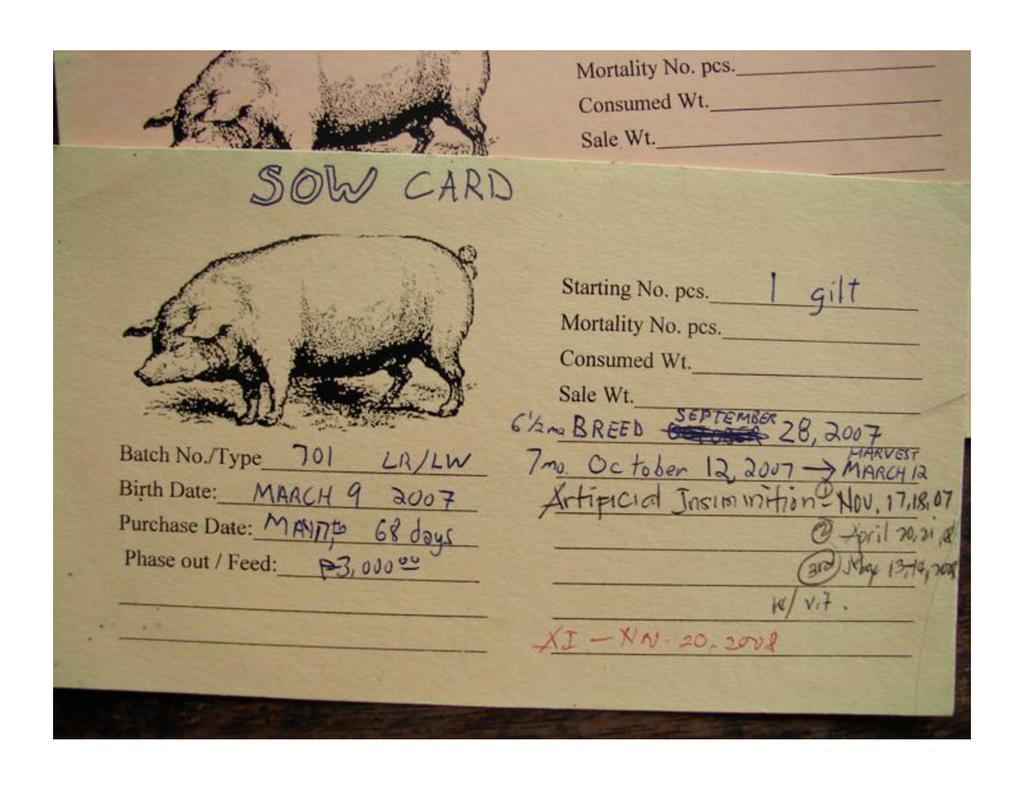 Mortality No. pcs.
Consumed Wt.
Sale Wt.
SOW CARD
Starting No. pcs. 1 gilt
Mortality No. pcs.
Consumed Wt.
Sale Wt.
6 1/2 mo BREED SEPTEMBER 28, 2007
7 mo. October 12, 2007 → HARVEST MARCH 12
Artificial Insimnition - ① Nov. 17,18,07
② April 20,21,
3rd May 13-14, 2008
w/ vit.
XI - Nov. 20, 2008
Batch No./Type 701 LR/LW
Birth Date: MARCH 9 2007
Purchase Date: 68 days
Phase out / Feed: ₱3,000.00